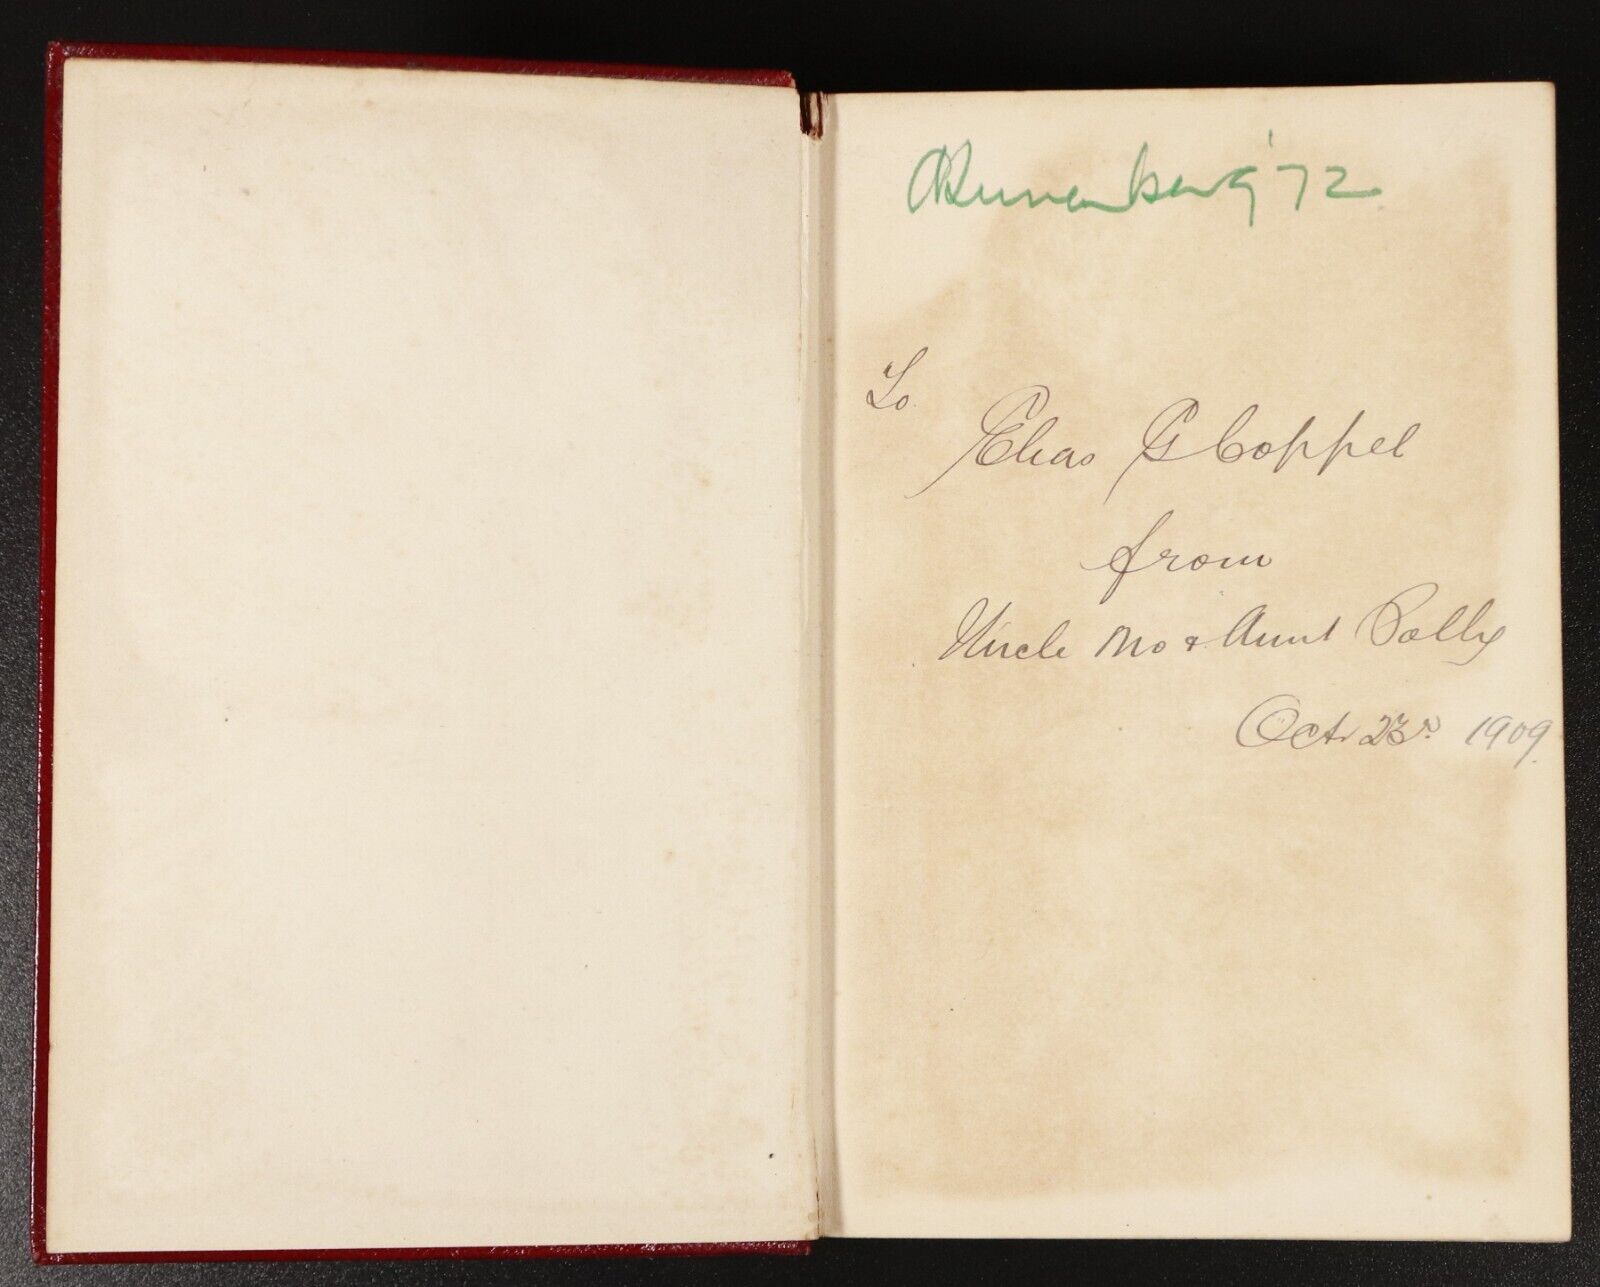 '72
To
Elias G Coppel
from
Uncle Mo & Aunt Polly
Oct 23rd 1909